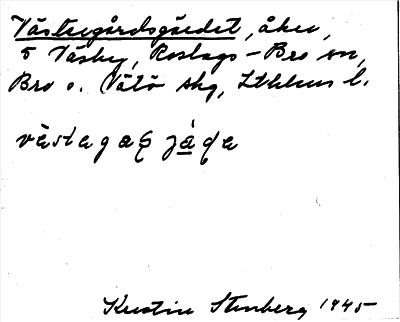 Västergårdsgärdet, åker,
5 Väsby, Roslags-Bro sn,
Bro o. Vätö skg, Sthlms l.
västagaʂ jäɖa
Kerstin Stenberg 1945